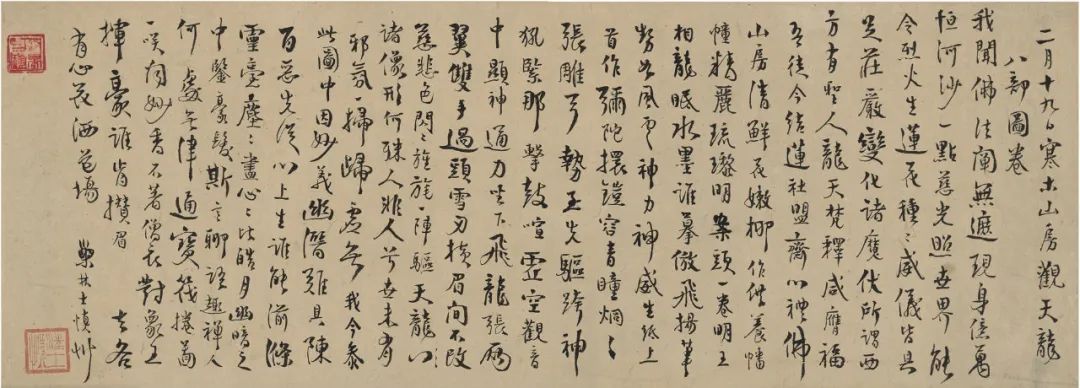 二月十九日寒木山房觀天龍
八部圖卷
我聞佛法闡無遮現身億萬
恒河沙一點慈光照世界能
令烈火生蓮花種〻威儀皆具
足莊嚴變化諸魔伏所謂西
方有聖人龍天梵釋咸膺福
吾徒今結蓮社盟齋心禮佛
山房清鮮花嫩柳作供養幡
幢精麗琉璃明案頭一卷明王
相龍眠水墨誰摹倣飛揚筆
勢如風雨神力神威生紙上
首作彌陀擐鎧容青瞳炯〻
張雕弓執玉先驅跨神
猊緊那擊鼓喧靈空觀音
中顯神通力坐下飛龍張兩
翼雙手過頭雪刃橫眉間不改
慈悲色閃〻旌旄一陣驅天龍八
諸像形何殊人非人兮世未有
邪氛一掃歸虛無我今參
此圖中因妙義幽潛難具陳
百忍先從以上生誰能湔滌
靈臺塵〻盡心〻比皓月幽暗之
中鑒毫髮斯言聊語趣禪人
何處無津通寶筏捲圖
一笑聞妙香不著僧衣對象王
揮豪誰肯攢眉去各
有心花洒道場 士慎艸